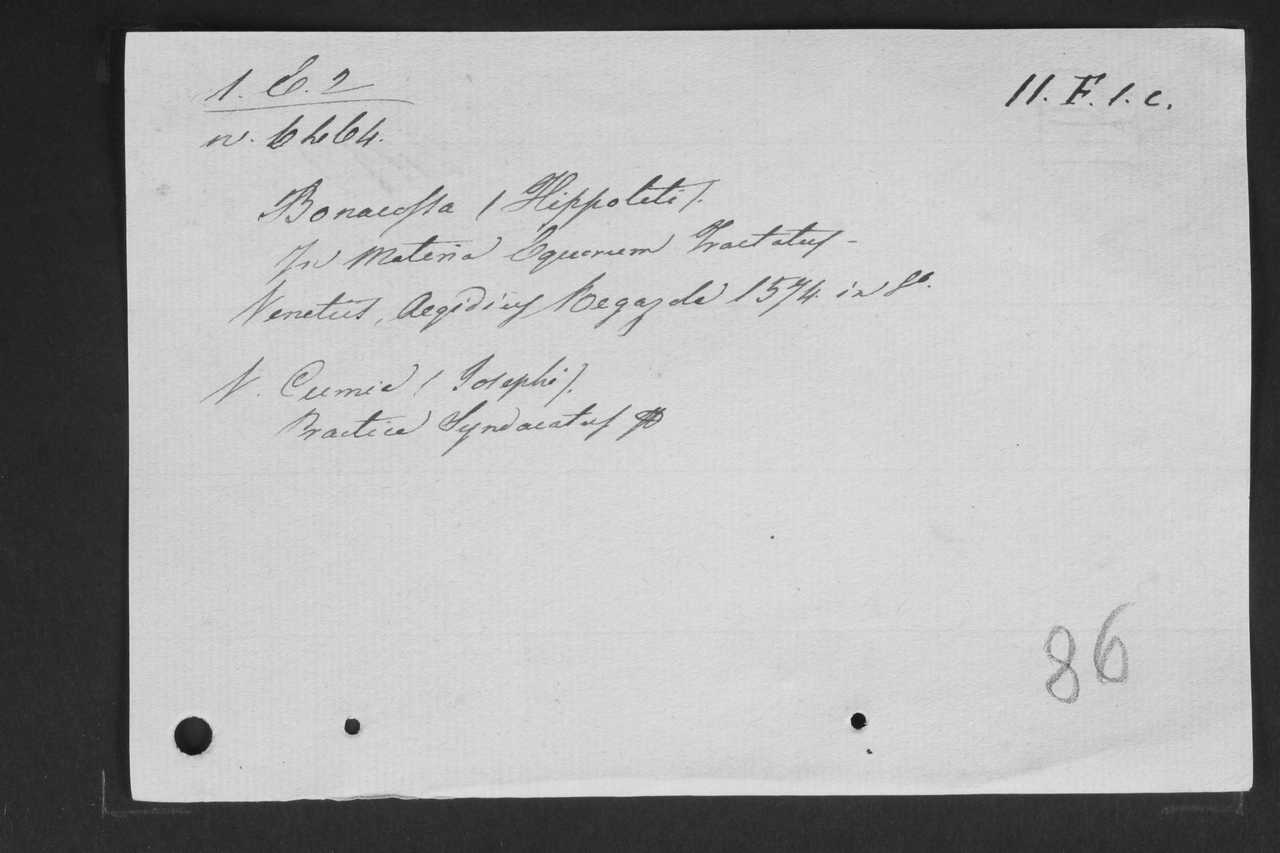 1. E. 2
11. F. 1. c.
Bonacossa (Hippoliti).
In Materia Equorum Tractatus -
Venetus, Aegidius Regazola 1574. in 8°.
V. Cumia (Josephi).
Practica Syndacatus
86